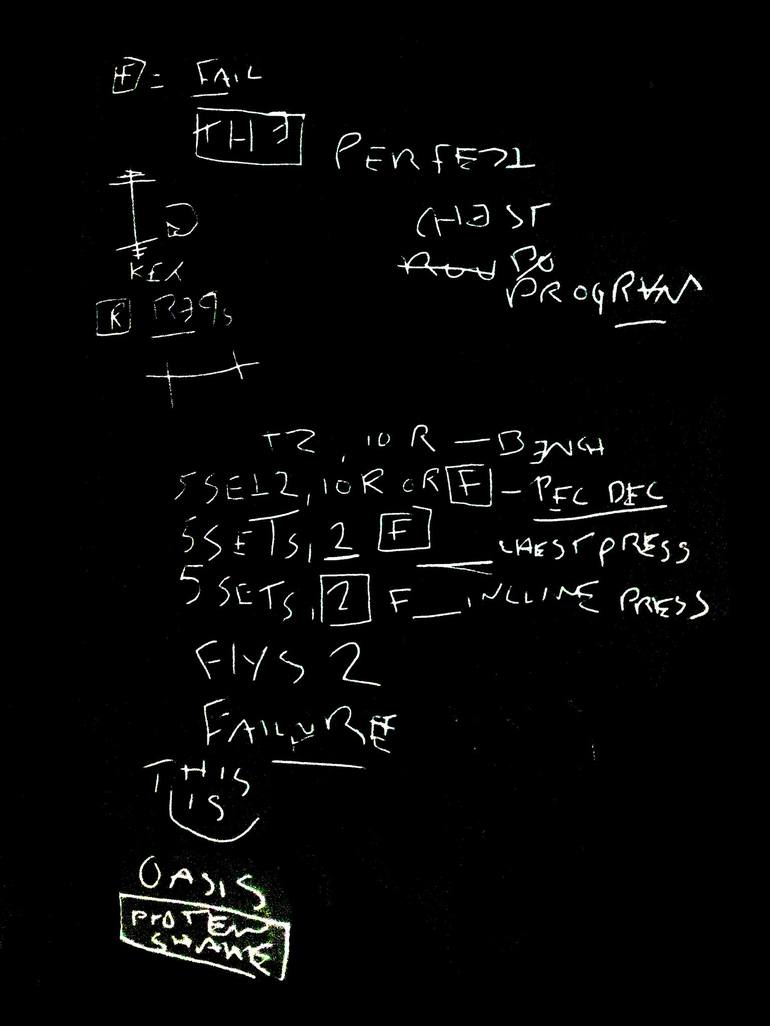 F = FAIL
THE PERFECT
CHEST
PROGRAM
KEY
R REPS
10 R — BENCH
5 SETS, 10R OR F - PEC DEC
5 SETS, 2 F CHEST PRESS
5 SETS, 2 F INCLINE PRESS
FlYS 2
FAILURE
THIS
IS
OASIS
PROTEIN
SHAKE